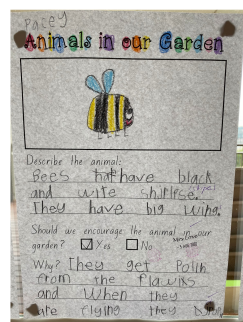 Pacey
Animals in our Garden
Describe the animal:
Bees have black
and wite
They have big wing.
Should we encourage the animal in our
garden? Yes No
Why? They get Polin
from the flawirs
and When they
are flying they